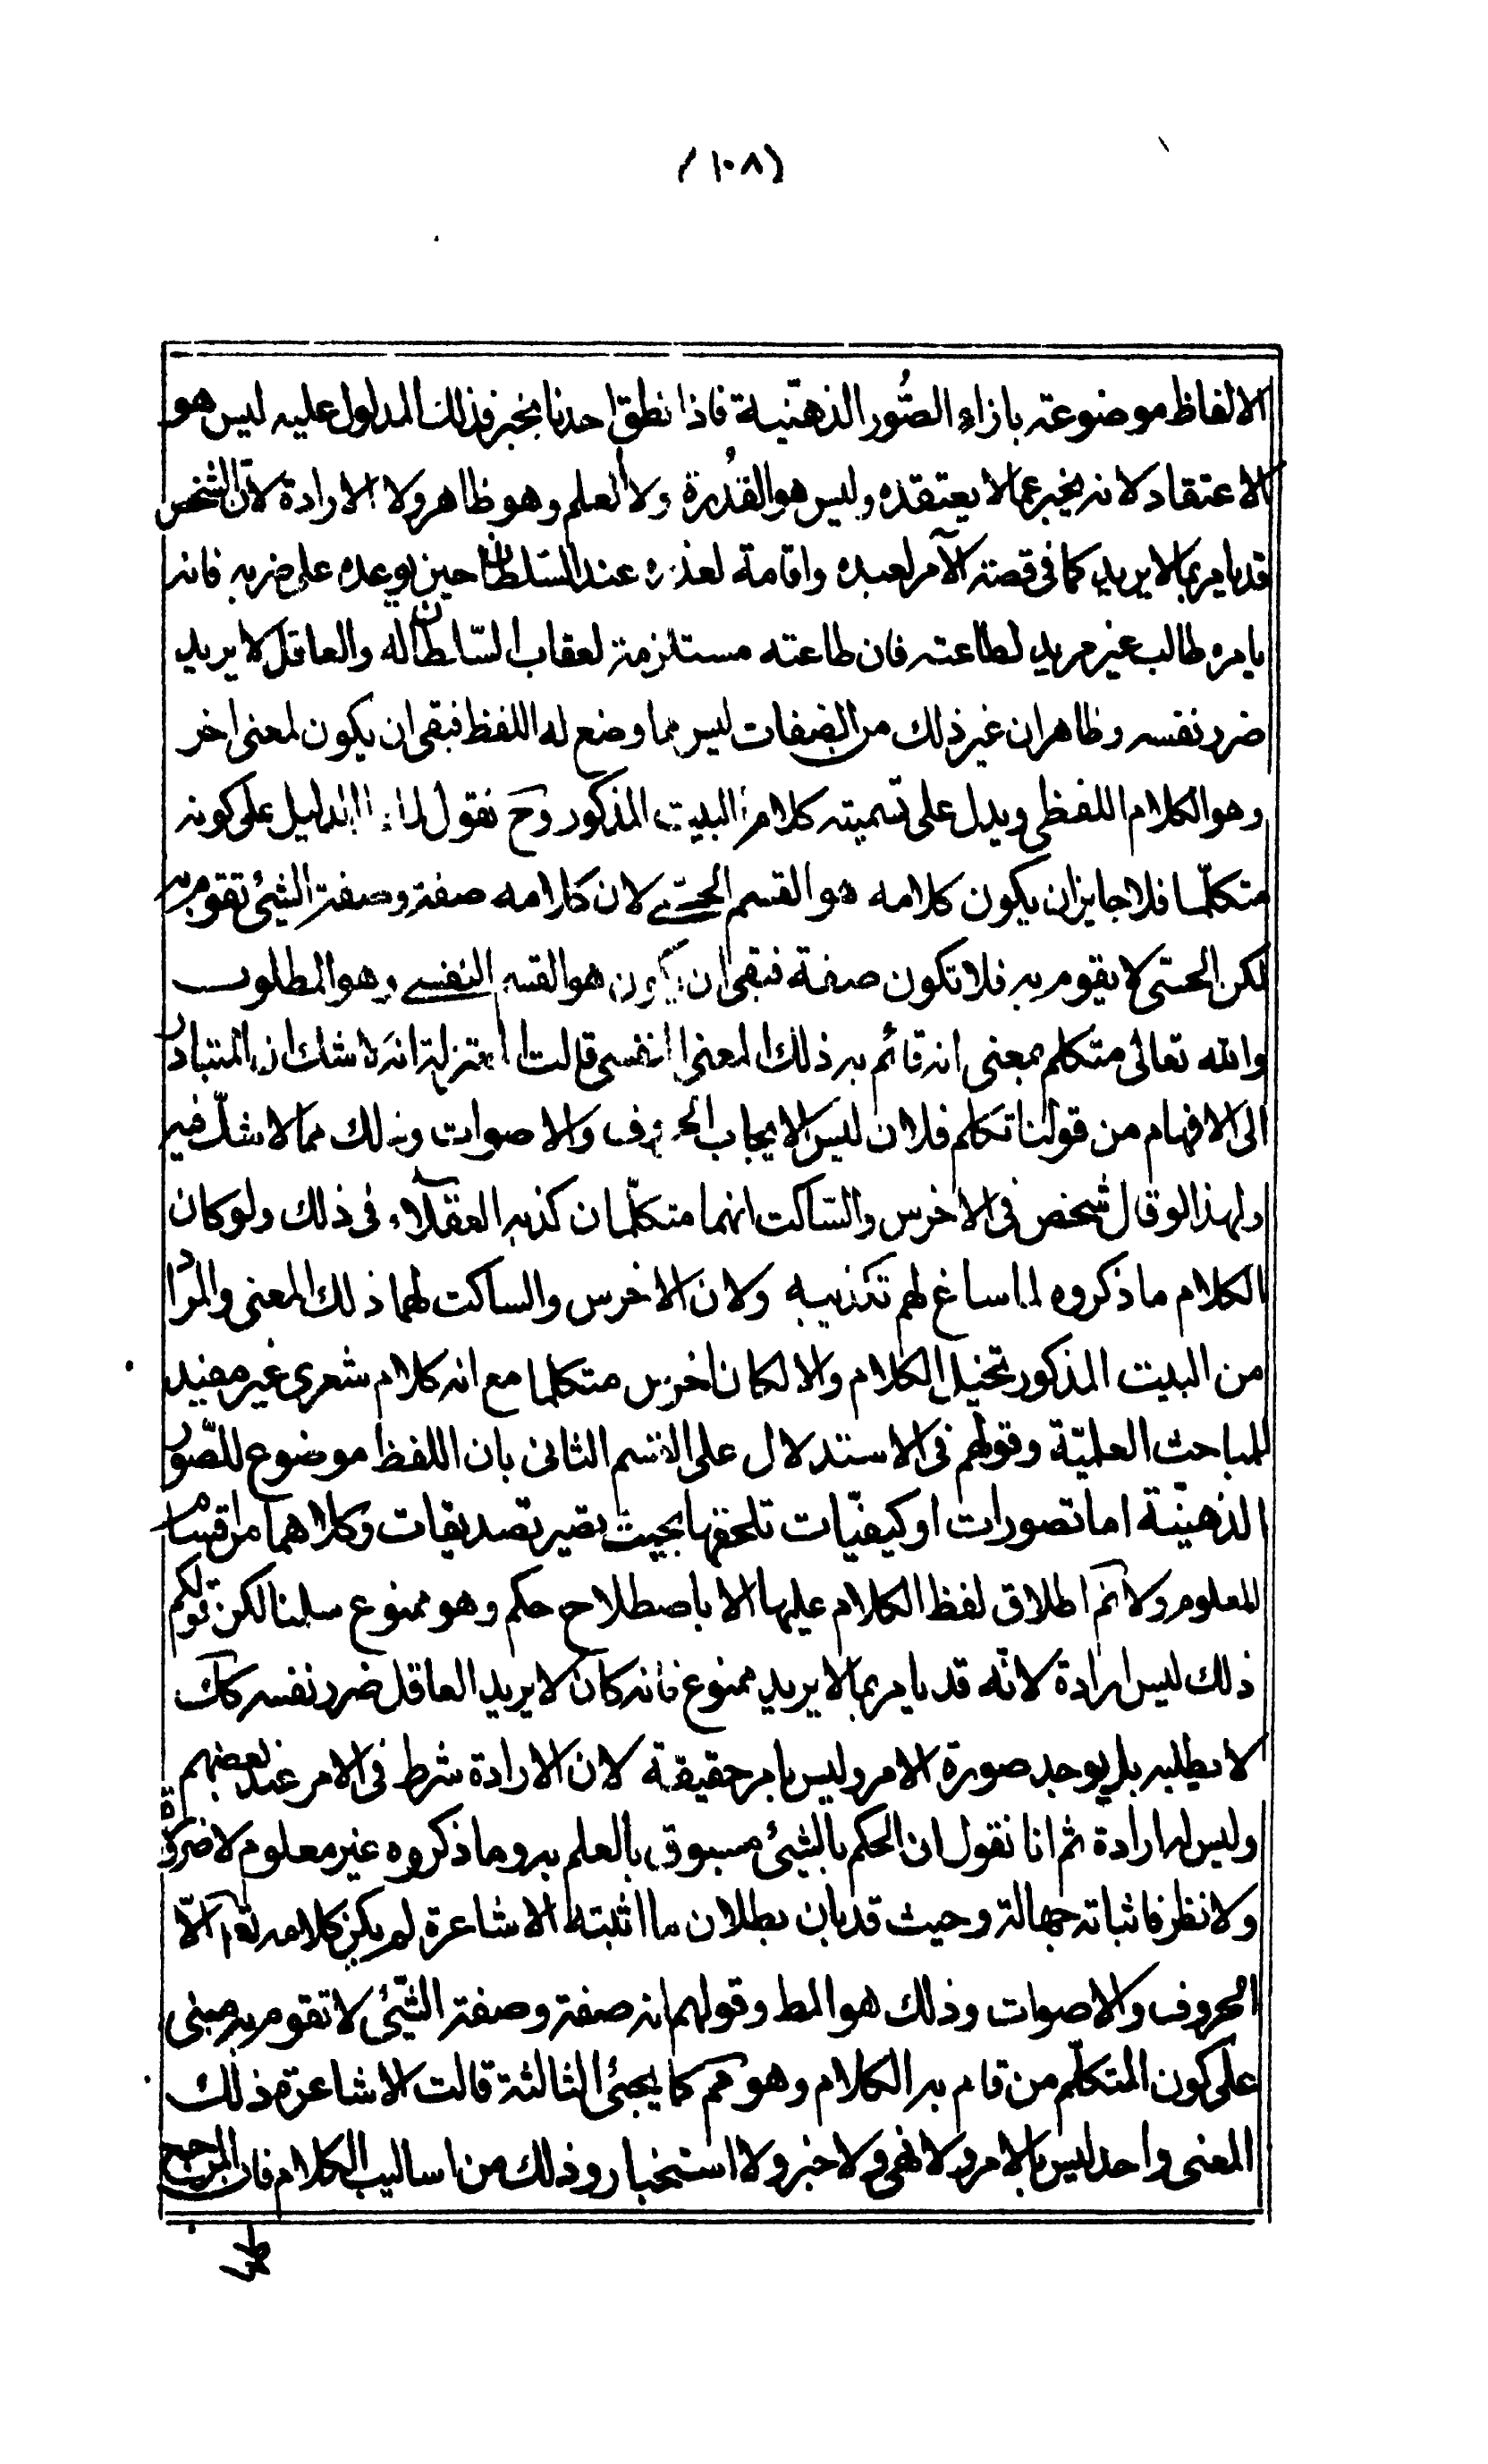 (١٠٨)
الالفاظ موضوعة بازاء الصُّور الذهنّية فاذا نطق احدنا بخبر فذلك المدلول عليه ليس هو
الاعتقاد لانه يخبر عما لا يعتقده وليس هو القُدرة ولا العلم وهو ظاهر ولا الارادة لان الشخص
قد يامر بما لا يريد كما فى قصة الآمر لعبده واقامة لعذره عند السّلطان حين يوعده على ضربه فانه
يامره طالب غير مريد لطاعته فان طاعته مستلزمة لعقاب السّلطان له والعاقل لا يريد
ضرر نفسه وظاهر ان غير ذلك من الصفات ليس مما وضع له اللفظ فبقى ان يكون لمعنى اخر
وهو الكلام اللفظى ويدل على تسميته كلاما البيت المذكور وح نقول الدليل على كونه
متكلّما فلا جايز ان يكون كلامه هو القسم الحسّى لان كلامه صفة وصفة الشيئ تقوم به
لكن الحسّى لا يقوم به فلا تكون صفة فبقى ان يكون هو القسم النفسى وهو المطلوب
والله تعالى متكلم بمعنى انه قائم به ذلك المعنى النفسى قالت المعتزلة انه لا شك ان المتبادر
الى الافهام من قولنا تكلم فلان ليس الا يجاب الحروف والاصوات وذلك مما لا شكّ فيه
ولهذا لو قال شخص فى الاخرس والسّاكت انهما متكلّمان كذبه العقلاء فى ذلك ولو كان
الكلام ما ذكروه لما ساغ لهم تكذيبه ولان الاخرس والساكت لهما ذلك المعنى والمراد
من البيت المذكور تخيل الكلام والا لكان اخرس متكلما مع انه كلام شعرى غير مفيد
للمباحث العلميّة وقولهم فى الاستدلال على القسم الثانى بان اللفظ موضوع للصّور
الذهنيّة اما تصورات او كيفيّات تلحقها بحيث تصير تصديقات وكلاهما من اقسام
المعلوم ولا نم اطلاق لفظ الكلام عليها الا باصطلاح حكم وهو ممنوع سلمنا لكن قولكم
ذلك ليس ارادة لانّه قد يامر بما لا يريد ممنوع فانه كان لا يريد العاقل ضرر نفسه كك
لا يطلبه بل يوجد صورة الامر وليس بامر حقيقة لان الارادة شرط فى الامر عند بعضهم
وليس له ارادة ثم انا نقول ان الحكم بالشيئ مسبوق بالعلم به وما ذكروه غير معلوم لا ضرورة
ولا نظر فاثباته جهالة وحيث قد بان بطلان ما اثبته الاشاعرة لم يكن كلامه تعم الّا
الحروف والاصوات وذلك هو المط وقولهم انه صفة وصفة الشّيئى لا تقوم به مبنى
على كون المتكلّم من قام به الكلام وهو مم كما يجيئ الثالثة قالت الاشاعرة ذلك
المعنى واحد ليس بالامر ولا نهى ولا خبر ولا استخبار وذلك من اساليب الكلام فان المرجع